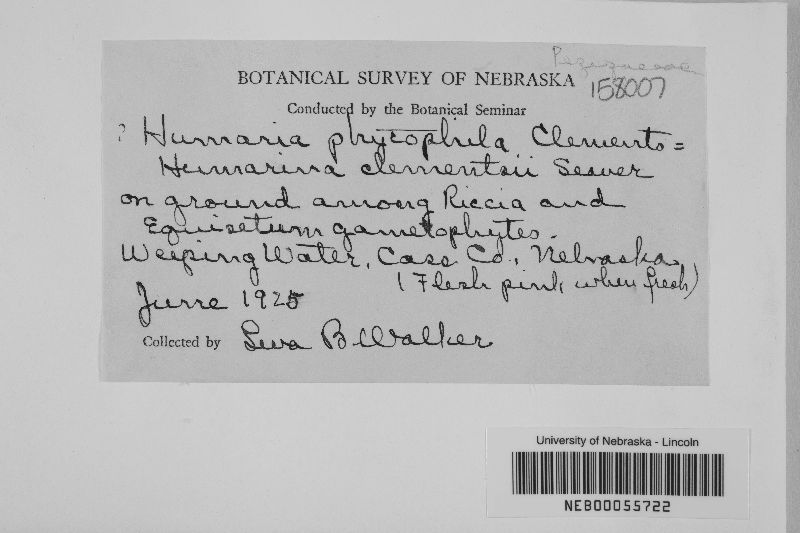 Pezizaceae
BOTANICAL SURVEY OF NEBRASKA
158007
Conducted by the Botanical Seminar
? Humaria phycophila Clements =
Humarina clementsii Seaver
on ground among Riccia and
Equisetum gametophytes.
Weeping Water, Cass Co., Nebraska
(Flesh pink when fresh)
June 1925
Collected by Leva B Walker
University of Nebraska - Lincoln
NEB00055722